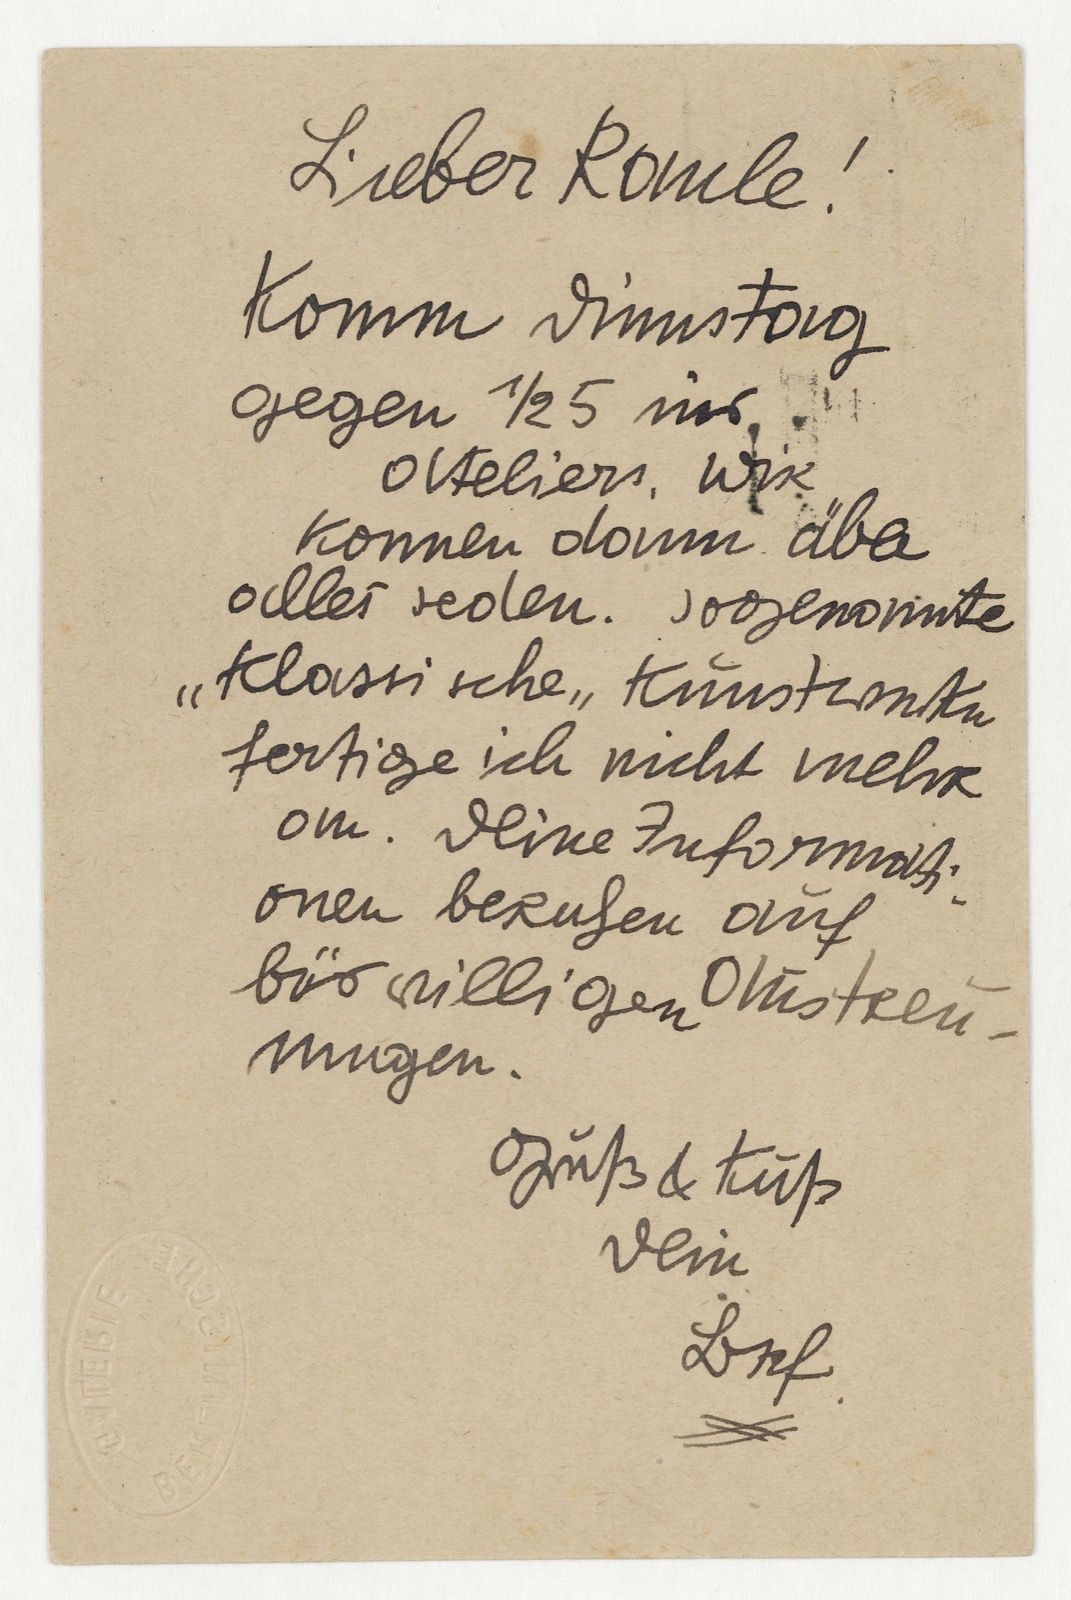 Lieber Raoule!
Komm Dienstag
gegen 1/2 5 ins
Atelier. Wir
konnen dann über
alles reden. Sogenannte
„Klassische„ Kunstwerke
fertige ich nicht mehr
an. Deine Informati-
onen beruhen auf
böswilligen Ausstreu-
ungen.
Gruß & Kuß
Dein
BERLINISCHE
GALERIE